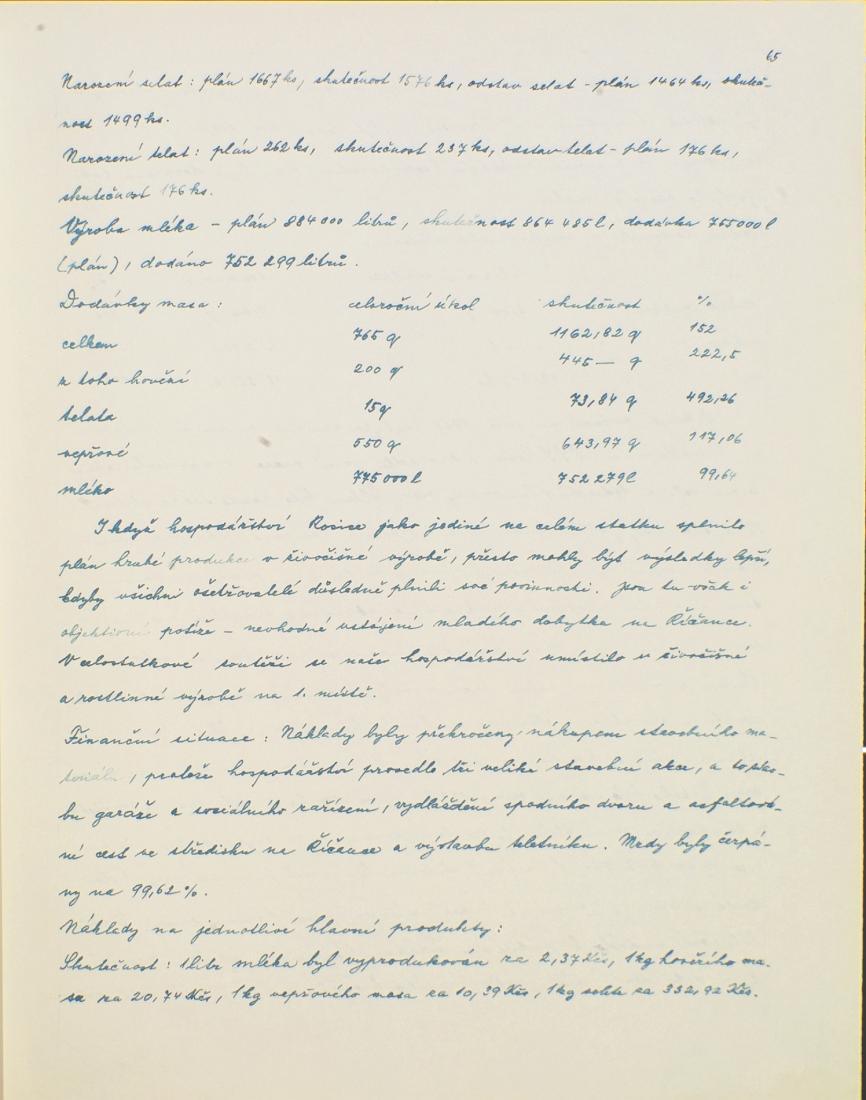 65
Narození selat : plán 1667 ks, skutečnost 1576 ks, odstav selat - plán 1464 ks, skuteč-
nost 1499 ks.
Narození telat : plán 262 ks, skutečnost 237 ks, odstav telat - plán 176 ks,
skutečnost 176 ks.
Výroba mléka - plán 884 000 litrů, skutečnost 864 485 l, dodávka 755000 l
(plán), dodáno 752 299 litrů.
Dodávky masa : celoroční úkol skutečnost %
celkem 765 q 1162,82 q 152
z toho hovězí 200 q 445 — q 222,5
telata 15 q 73,84 q 492,26
vepřové 550 q 643,97 q 117,06
mléko 775 000 l 752 279 l 99,64
I když hospodářství Rosice jako jediné na celém statku splnilo
plán hrubé produkce v živočišné výrobě, přesto mohly být výsledky lepší,
kdyby všichni ošetřovatelé důsledně plnili své povinnosti. Jsou tu však i
objektivní potíže - nevhodné ustájení mladého dobytka na Říčance.
V celostatkové soutěži se naše hospodářství umístilo v živočišné
a rostlinné výrobě na 1. místě.
Finanční situace : Náklady byly překročeny nákupem stavebního ma-
teriálu, protože hospodářství provedlo tři veliké stavební akce, a to stav-
bu garáže a sociálního zařízení, vydláždění spodního dvora a asfaltová-
ní cest ve středisku na Říčance a výstavbu teletníku. Mzdy byly čerpá-
ny na 99,62 %.
Náklady na jednotlivé hlavní produkty :
Skutečnost : 1 litr mléka byl vyprodukován za 2,37 Kčs, 1 kg hovězího ma-
sa za 20,74 Kčs, 1 kg vepřového masa za 10,39 Kčs, 1 kg selete za 332,92 Kčs.